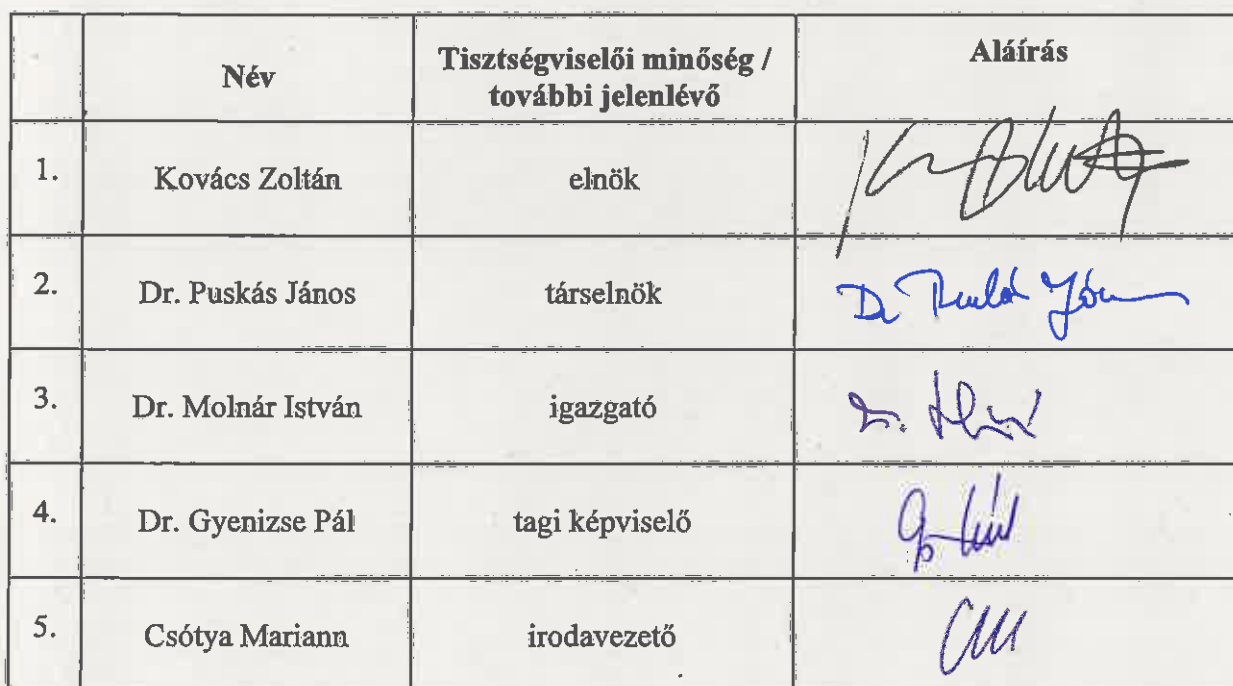 Név
Tisztségviselői minőség /
további jelenlévő
Aláírás
1. Kovács Zoltán elnök
2. Dr. Puskás János társelnök
3. Dr. Molnár István igazgató
4. Dr. Gyenizse Pál tagi képviselő
5. Csótya Mariann irodavezető